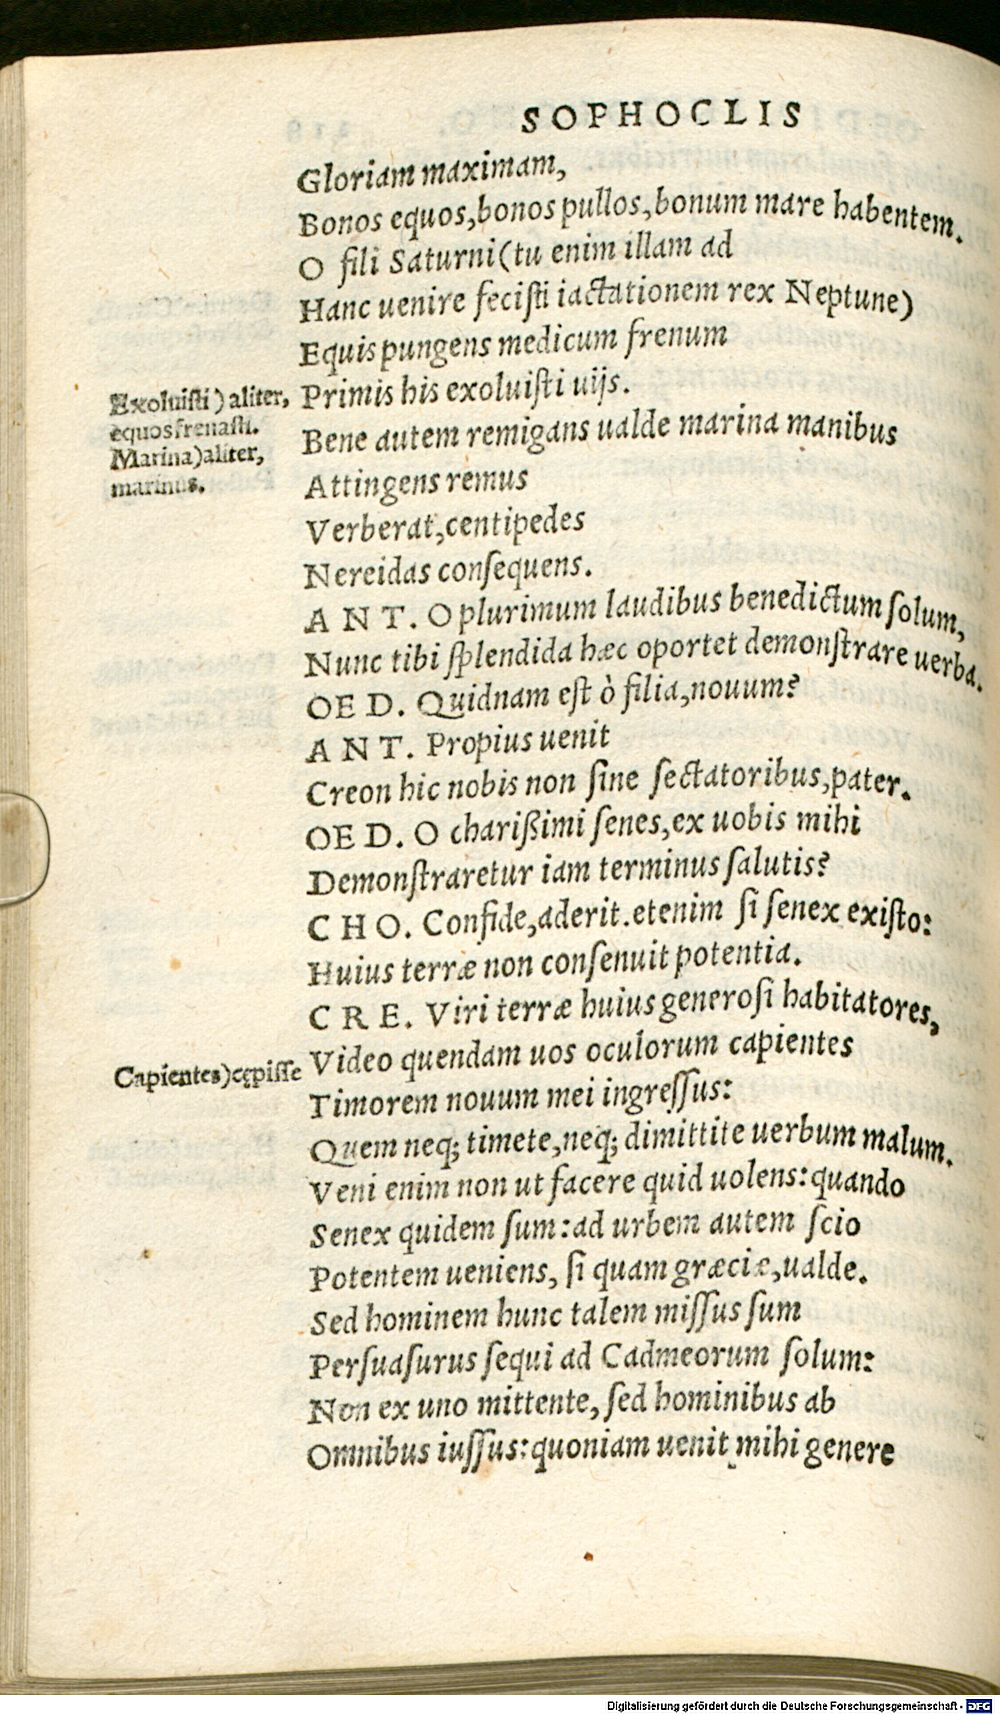 SOPHOCLIS
Gloriam maximam,
Bonos equos, bonos pullos, bonum mare habentem.
O fili Saturni (tu enim illam ad
Hanc uenire fecisti iactationem rex Neptune)
Equis pungens medicum frenum
Primis his exoluisti uijs.
Exoluisti) aliter,
equos frenasti.
Marina) aliter,
marinus.
Bene autem remigans ualde marina manibus
Attingens remus
Verberat, centipedes
Nereidas consequens.
ANT. O plurimum laudibus benedictum solum,
Nunc tibi splendida hæc oportet demonstrare uerba.
OED. Quidnam est ò filia, nouum?
ANT. Propius uenit
Creon hic nobis non sine sectatoribus, pater.
OED. O charißimi senes, ex uobis mihi
Demonstraretur iam terminus salutis?
CHO. Confide, aderit. etenim si senex existo:
Huius terræ non consenuit potentia.
CRE. Viri terræ huius generosi habitatores,
Video quendam uos oculorum capientes
Capientes) cępisse
Timorem nouum mei ingressus:
Quem neq; timete, neq; dimittite uerbum malum.
Veni enim non ut facere quid uolens: quando
Senex quidem sum: ad urbem autem scio
Potentem ueniens, si quam græciæ, ualde.
Sed hominem hunc talem missus sum
Persuasurus sequi ad Cadmeorum solum:
Non ex uno mittente, sed hominibus ab
Omnibus iussus: quoniam uenit mihi genere
Digitalisierung gefördert durch die Deutsche Forschungsgemeinschaft - DFG